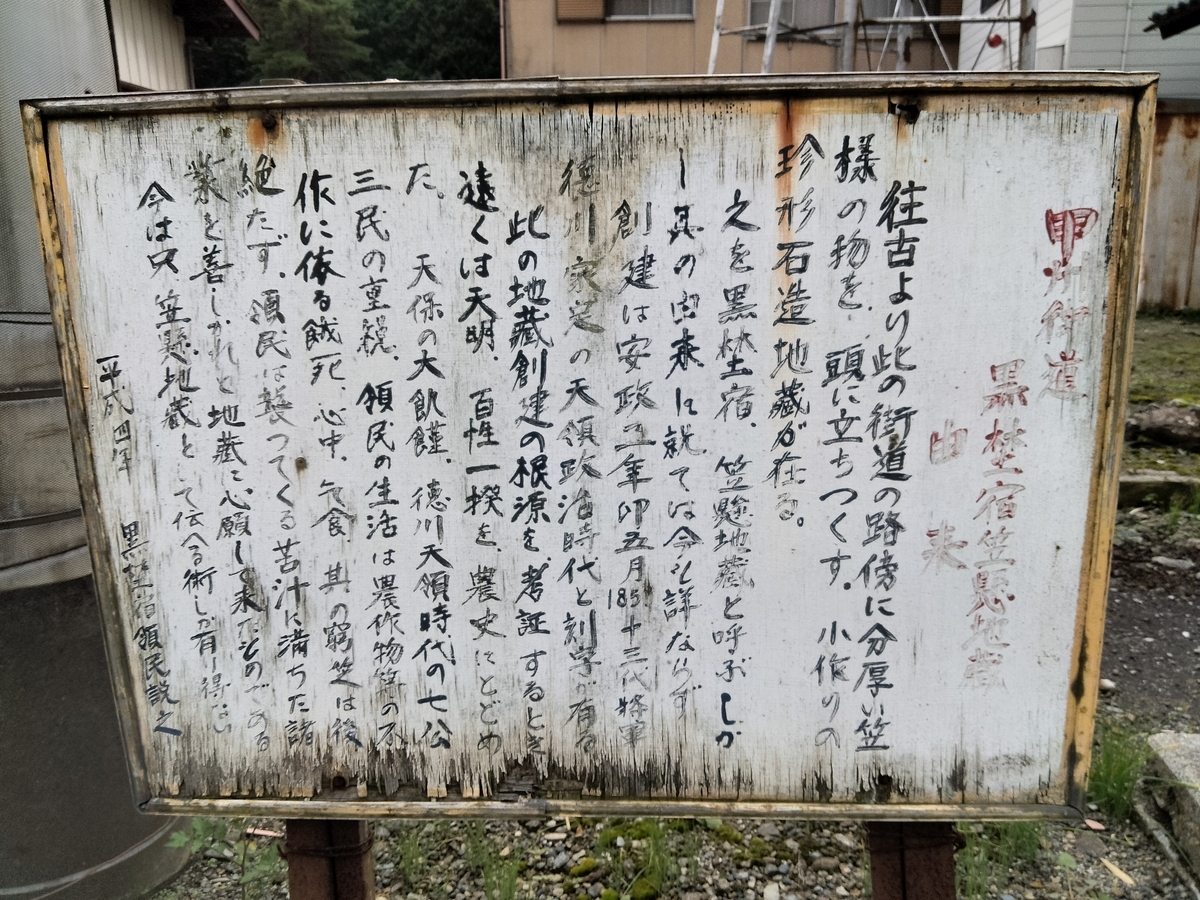 甲州街道
黒埜宿笠懸地蔵
由来
往古より此の街道の路傍に分厚い笠
様の物を、頭に立ちつくす。小作りの
珍形石造地蔵が在る。
之を黒埜宿、笠懸地蔵と呼ぶしか
し其の由来に就ては今も詳ならず
創建は安政二年卯五月1855十三代将軍
徳川家定の天領政治時代と刻字が有る
此の地蔵創建の根源を、考証するとき
遠くは天明、百性一揆を、農史にとどめ
た。天保の大飢饉、徳川天領時代の七公
三民の重税、領民の生活は農作物等の不
作に依る餓死、心中、乞食、其の窮笠は後
絶たず、領民は襲つてくる苦汁に満ちた諸
業を善しかれと地蔵に心願して来たものである
今は只笠懸地蔵として伝へる術しか有り得ない
平成四年　黒埜宿領民説之